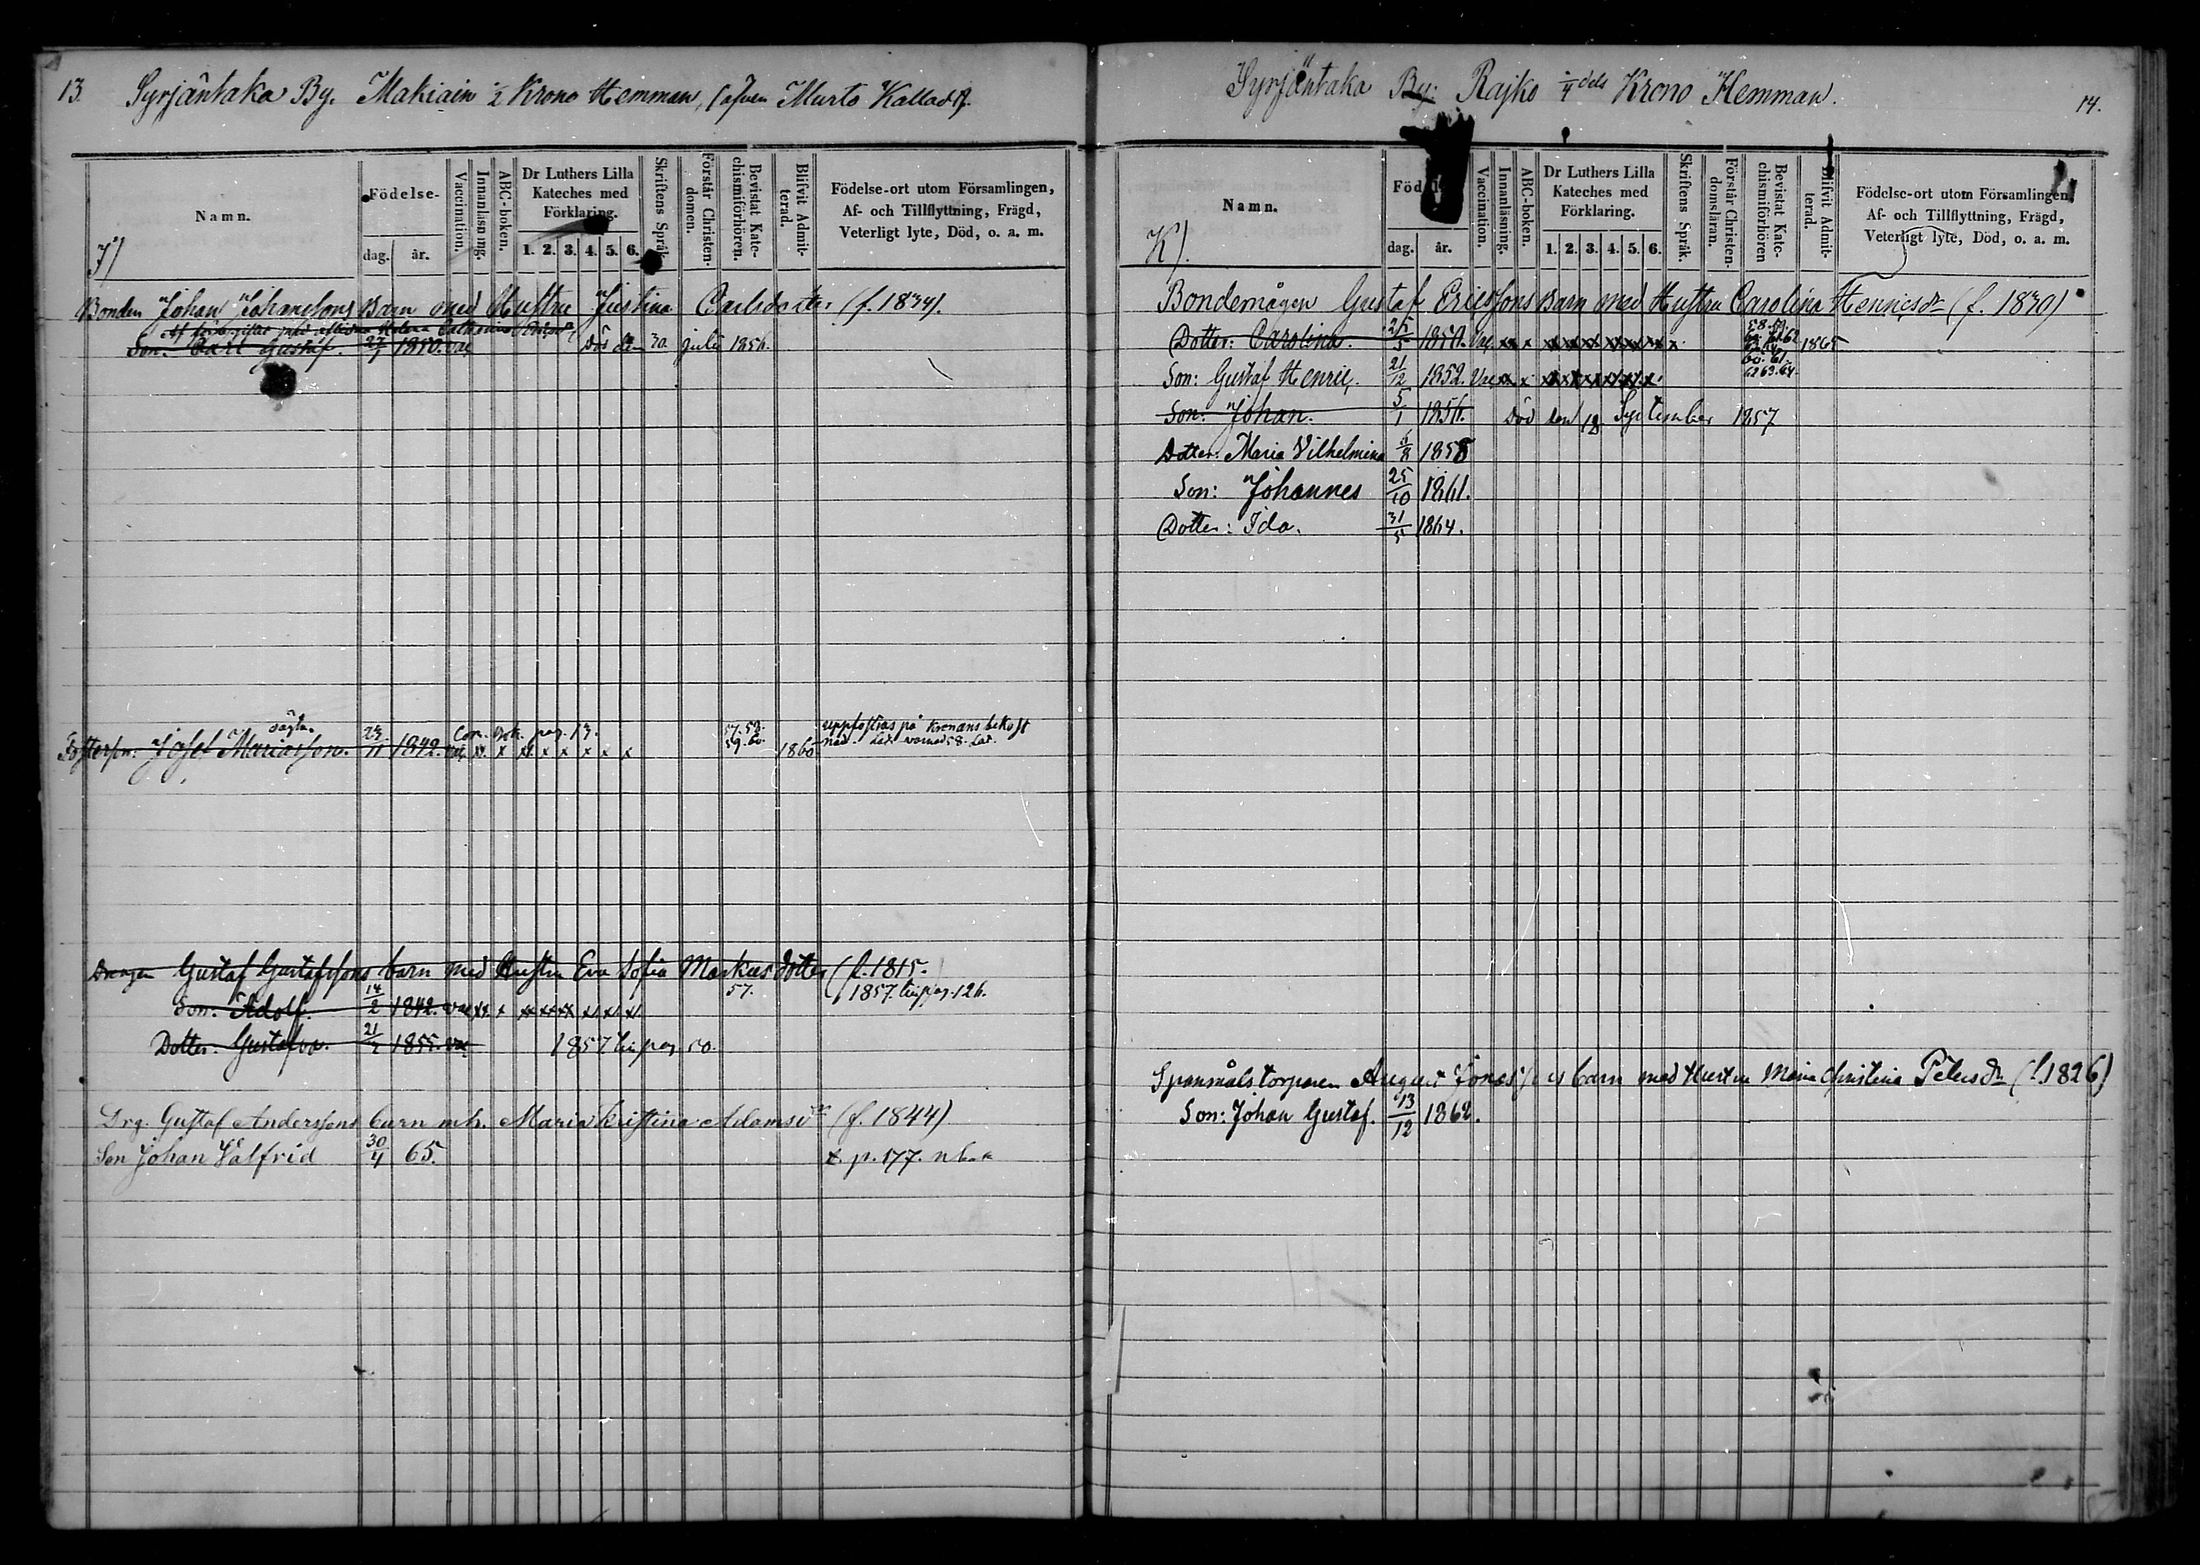 13. Syrjäntaka By. Makiain 1/2 Krono Hemman, (äfven Murto Kallad).
Namn.
Födelse-
dag.
år.
Vaccination.
Innanläsning.
ABC-boken.
Dr Luthers Lilla Kateches med Förklaring.
1. 2. 3. 4. 5. 6.
Skriftens Språk.
Förstår Christendomen.
Bevistat Katechismiförhören.
Blifvit Admitterad.
Födelse-ort utom Församlingen,
Af- och Tillflyttning, Frägd,
Veterligt lyte, Död, o. a. m.
J)
Bonden Johan Johanssons Barn med Hustru Justina Carlsdotter (f. 1834).
Son: Carl Gustaf. 27/1 1850. vac Död den 30 juli 1856.
Con. Prot. pag. 13. 57. 58. uppfostras på Kronans bekost
Fosterson: Josef Mariasson. 23/11 1842. vac xx. x x x x x x x 59. 60. 1860
Drengen Gustaf Gustafssons barn med Hustru Eva Sofia Markusdotter (f. 1815.
57. 1857 till pag. 126.
Son: Adolf. 14/2 1842. vac xx. x xx xx xx x x x
Dotter: Gustafva. 21/2 1855. vac 1857 till pag 50.
Drg. Gustaf Anderssons barn m.h. Maria Kristina Adamsdr (f. 1844)
Son Johan Valfrid 30/4 65. t. p. 177. n. b.
Syrjäntaka By: Rajko 1/4 dels Krono Hemman. 14.
Namn.
Föd
dag.
år.
Vaccination.
Innanläsning.
ABC-boken.
Dr Luthers Lilla Kateches med Förklaring.
1. 2. 3. 4. 5. 6.
Skriftens Språk.
Förstår Christendomsläran.
Bevistat Katechismiförhören
Blifvit Admitterad.
Födelse-ort utom Församlingen,
Af- och Tillflyttning, Frägd,
Veterligt lyte, Död, o. a. m.
K).
Bondemågen Gustaf Ericssons Barn med Hustru Carolina Hennesdr (f. 1830)
Dotter: Carolina. 25/5 1850. Vac xx x xx xx xx xx xx xx x 1865
Son: Gustaf Henric. 21/12 1852. Vac xx x xx xx xx xx xx x 60. 61. 62 63. 64.
Son: Johan. 5/1 1856. Död den 18 September 1857
Dotter: Maria Vilhelmina 6/8 1858
Son: Johannes 25/10 1861.
Dotter: Ida. 31/5 1864.
Spanmålstorparen August barn med Hustru Maria Christina Petersdr (f. 1826)
Son: Johan Gustaf. 13/12 1862.